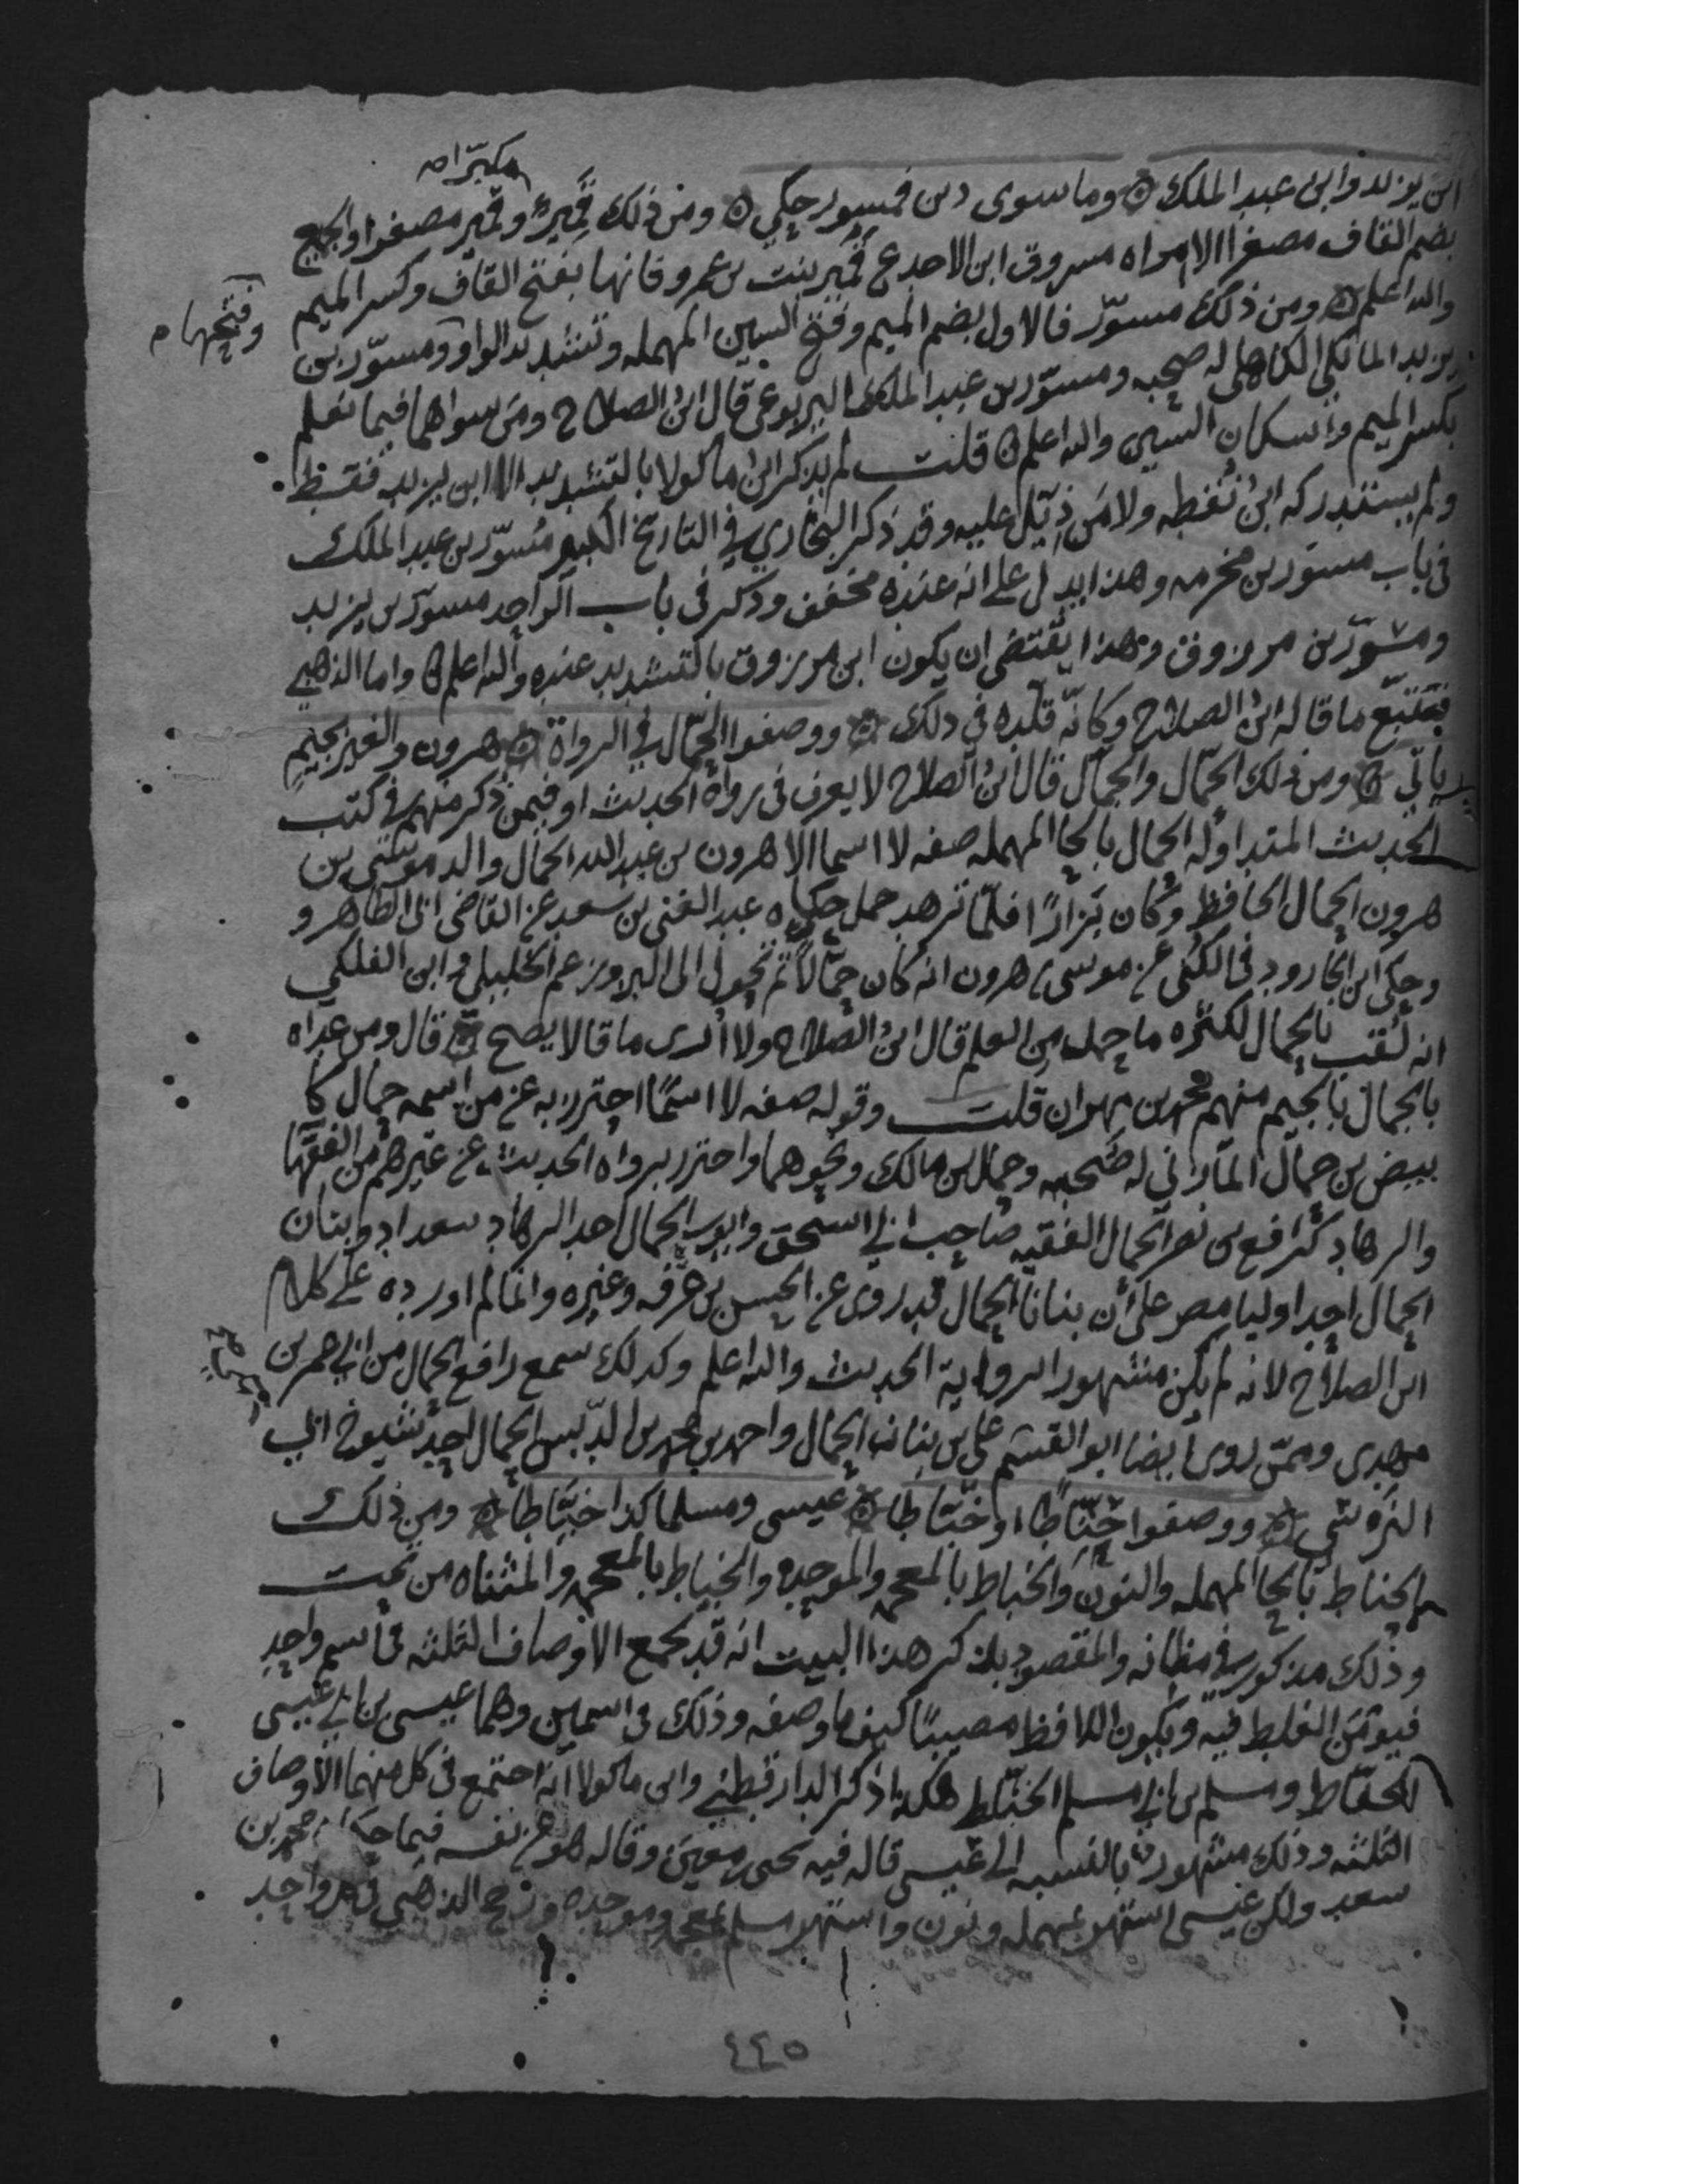 مكبرا مـ
ابن يزيد وابن عبد الملك ۞ وما سوى ذين فمسور حكي ۞ ومن ذلك قَمِير وقُمير مصغرا والجميع
بضم القاف مصغرا الا امراه مسروق ابن الاجدع قمير بنت بن عمرو فانها بفتح القاف وكسر الميم
وفتحها م
والله اعلم ۞ ومن ذلك مسوّر فالاول بضم الميم وفتح السين المهمله وتشديد الواو ومسوّر بن
يزيد المالكي الكاهلي له صحبه ومسوّر بن عبد الملك اليربوعي قال ابن الصلاح ومن سواهما فيما نعلم
بكسر الميم واسكان السين والله اعلم ۞ قلت لم يذكر ابن ماكولا بالتشديد الا ابن يزيد فقط
ولم يستدركه ابن نقطه ولا من ذيّل عليه وقد ذكر البخاري في التاريخ الكبير مسوّر بن عبد الملك
في باب مسور بن مخرمه وهذا يدل على انه عنده مخفف وذكر في باب الواحد مسوّر بن يزيد
ومسوّر بن مرزوق وهذا يقتضي ان يكون ابن مرزوق بالتشديد عنده والله اعلم ۞ واما الذهبي
فتتبّع ما قاله ابن الصلاح وكانّه قلّده في ذلك ۞ ووصفوا الحمّال في الرواة ۞ هرون والغير بجيم
ياتي ۞ ومن ذلك الحمّال والجمّال قال ابن الصلاح لا يعرف في رواه الحديث او فيمن ذكر منهم في كتب
الحديث المتداوله الحمال بالحا المهمله صفه لا اسما الا هرون بن عبد الله الحمال والد موسى بن
هرون الحمال الحافظ وكان بزازا فلمّا تزهد حمل حكاه عبد الغني بن سعيد عن القاضي ابي الطاهر و
وحكى ابن الجارود في الكنى عن موسى بن هرون انه كان حمّالا ثم تحول الى البز وزعم الخليلي وابن الفلكي
انه لُقّب بالحمال لكثره ما حمل من العلم قال ابن الصلاح ولا ارى ما قالا يصح ۞ قال ومن عداه
بالجمال بالجيم منهم محمد بن مهران قلت وقوله صفه لا اسمًا احترز به عن من اسمه حمال كا
بيض بن حمال المازني له صحبه وحمال بن مالك ونحوهما واحترز برواه الحديث عن غيرهم من الفقها
والزهاد كرافع بن نصر الحمال الفقيه صاحب ابي اسحق وايوب الحمال احد الزهاد ببغداد وبنان
الحمال احد اوليا مصر على ان بنانا الحمال قد روى عن الحسن بن عرفه وغيره وانما لم اورده على كلام
ابن الصلاح لانه لم يكن مشهورا برواية الحديث والله اعلم وكذلك سمع رافع الحمال من ابي عمر بن
مهدي وممّن روى ايضا ابو القسم علي بن بنان الحمال واحمد بن محمد بن الدبس الحمال احد شيوخ ابي
النرسي ۞ ووصفوا حنّاطا او خبّاطا ۞ عيسى ومسلما كذا خيّاطا ۞ ومن ذلك
الحناط بالحا المهمله والنون والخباط بالمعجمه والموحده والخياط بالمعجمه والمثناه من تحت
وذلك مذكور في مظانه والمقصود بذكر هذا البيت انه قد تجمع الاوصاف الثلثه في اسم واحد
فيومَن الغلط فيه ويكون اللافظ مصيبًا كيف ما وصفه وذلك في اسمين وهما عيسى بن ابي عيسى
الحنّاط ومسلم بن ابي مسلم الخبّاط هكذا ذكر الدارقطني وابن ماكولا انه اجتمع في كل منهما الاوصاف
الثلثه وذلك مشهور بالنسبه الى عيسى قاله فيه يحيى بن معين وقاله هو عن نفسه فيما حكاه محمد بن
سعد ولكن عيسى اشتهر بمهمله ونون واشتهر مسلم بمعجمه وموحده ورجح الذهبي في كل واحد
٤٤٥